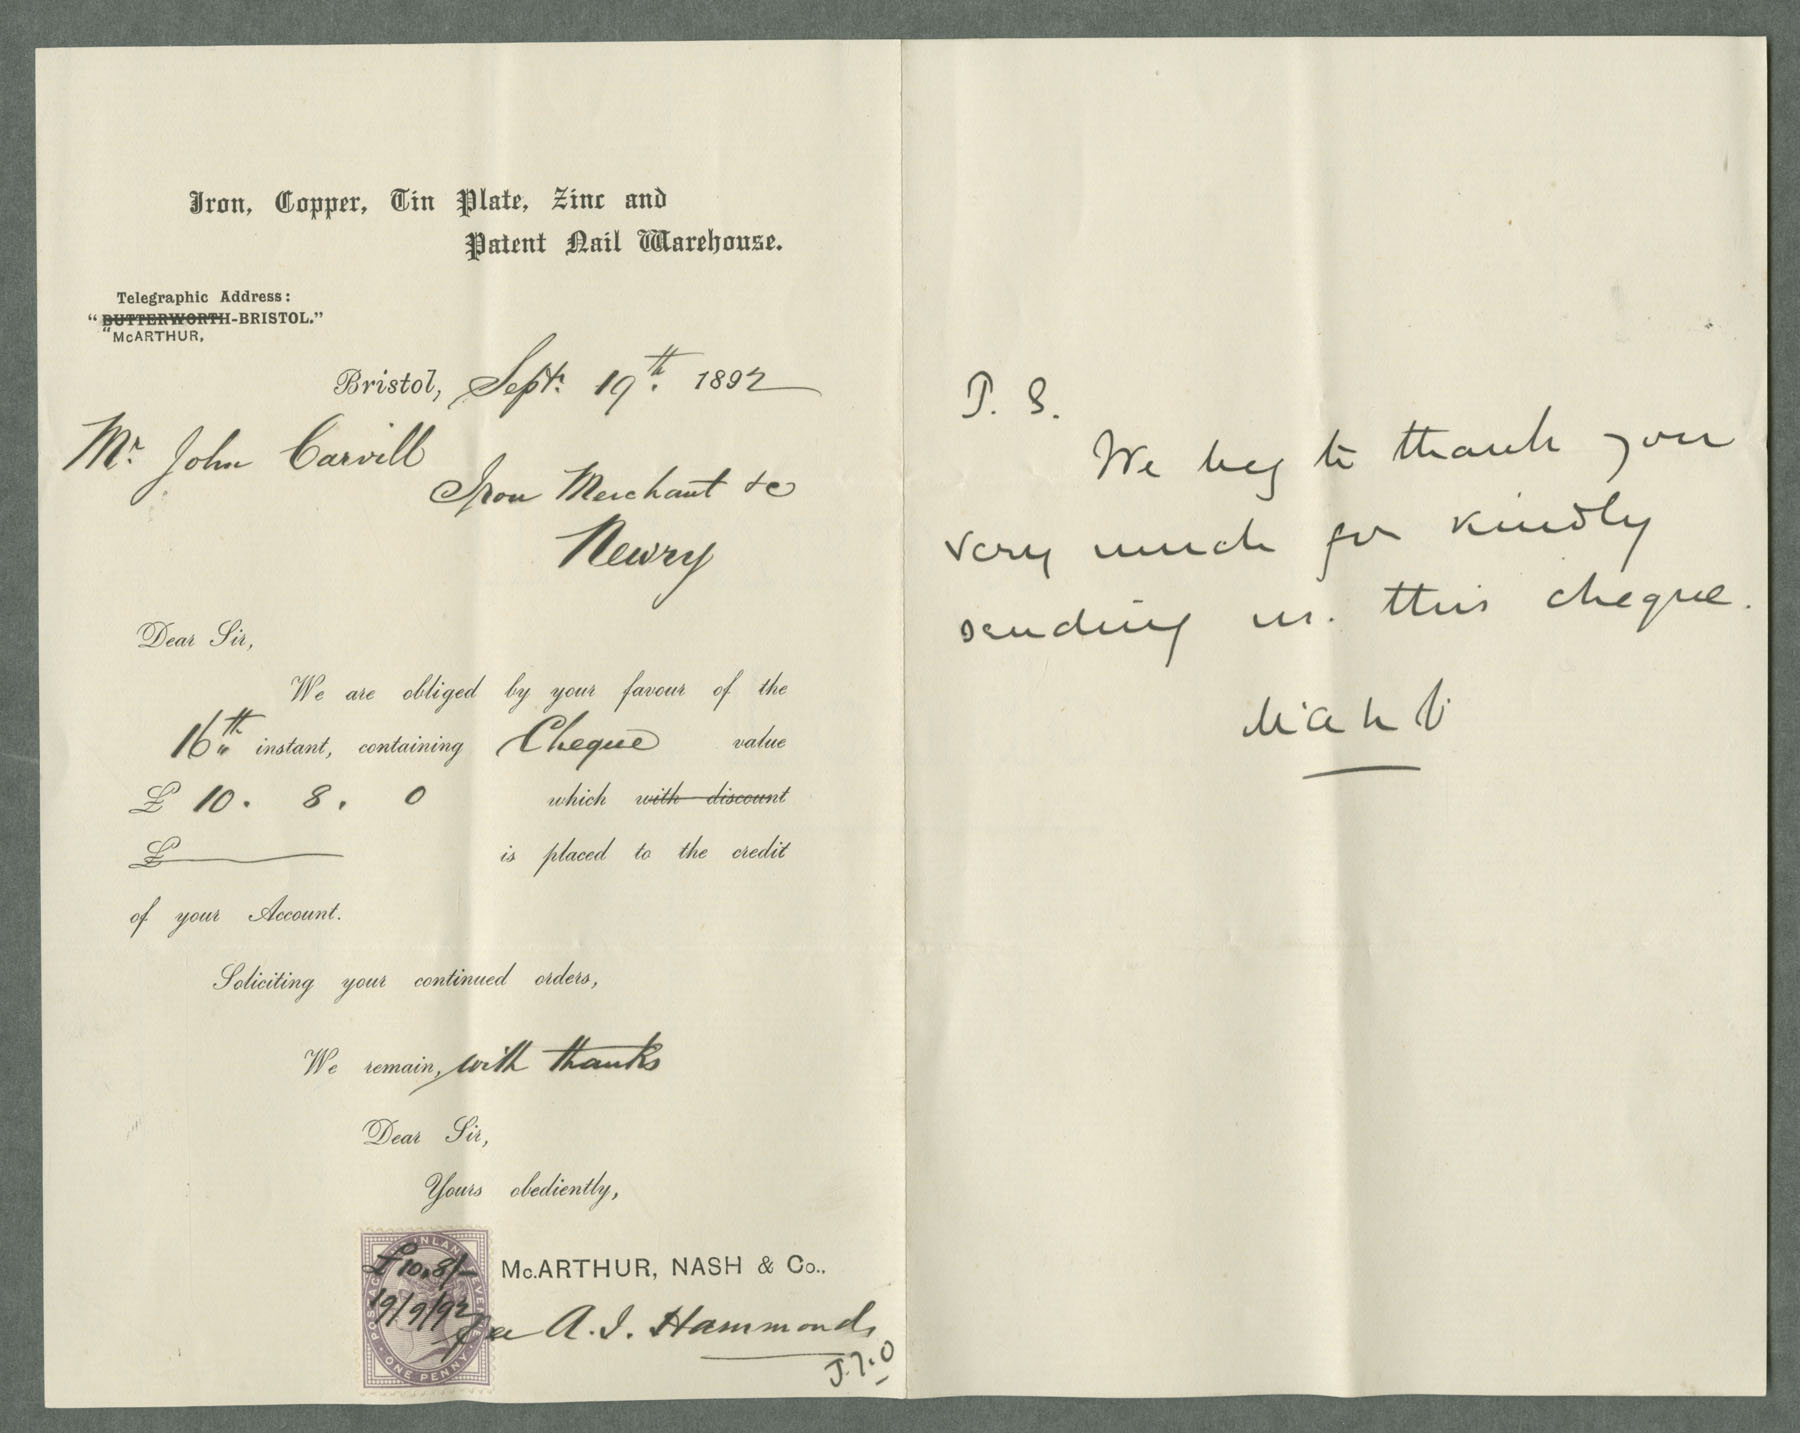 Iron, Copper, Tin Plate, Zinc and
Patent Nail Warehouse.
Telegraphic Address:
"BUTTERWORTH-BRISTOL."
"McARTHUR,
Bristol, Septr. 19th. 1892
Mr. John Carvill
Iron Merchant &c
Newry
Dear Sir,
We are obliged by your favour of the
16th instant, containing Cheque value
£ 10. 8. 0 which with discount
£ is placed to the credit
of your Account.
Soliciting your continued orders,
We remain, with thanks
Dear Sir,
Yours obediently,
McARTHUR, NASH & Co.,
A. I. Hammonds
£10.8/-
19/9/92
POSTAGE INLAND REVENUE
ONE PENNY
P. S.
We beg to thank you
very much for kindly
sending us. this cheque.